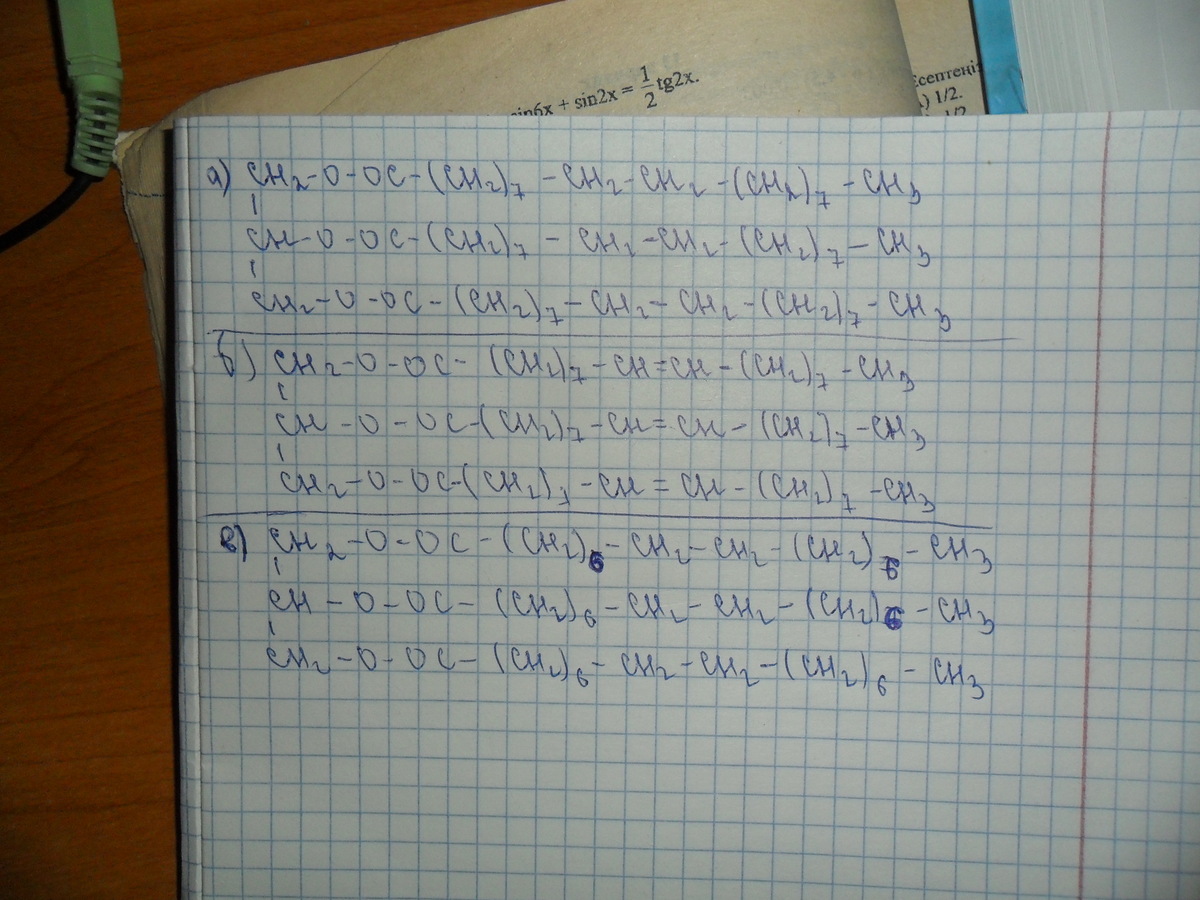 sin6x + sin2x = 1/2 tg2x.
Есептеңі
) 1/2.
1/2
а) CH₂-O-OC-(CH₂)₇-CH₂-CH₂-(CH₂)₇-CH₃
|
CH-O-OC-(CH₂)₇-CH₂-CH₂-(CH₂)₇-CH₃
|
CH₂-O-OC-(CH₂)₇-CH₂-CH₂-(CH₂)₇-CH₃
б) CH₂-O-OC-(CH₂)₇-CH=CH-(CH₂)₇-CH₃
|
CH-O-OC-(CH₂)₇-CH=CH-(CH₂)₇-CH₃
|
CH₂-O-OC-(CH₂)₇-CH=CH-(CH₂)₇-CH₃
в) CH₂-O-OC-(CH₂)₆-CH₂-CH₂-(CH₂)₆-CH₃
|
CH-O-OC-(CH₂)₆-CH₂-CH₂-(CH₂)₆-CH₃
|
CH₂-O-OC-(CH₂)₆-CH₂-CH₂-(CH₂)₆-CH₃